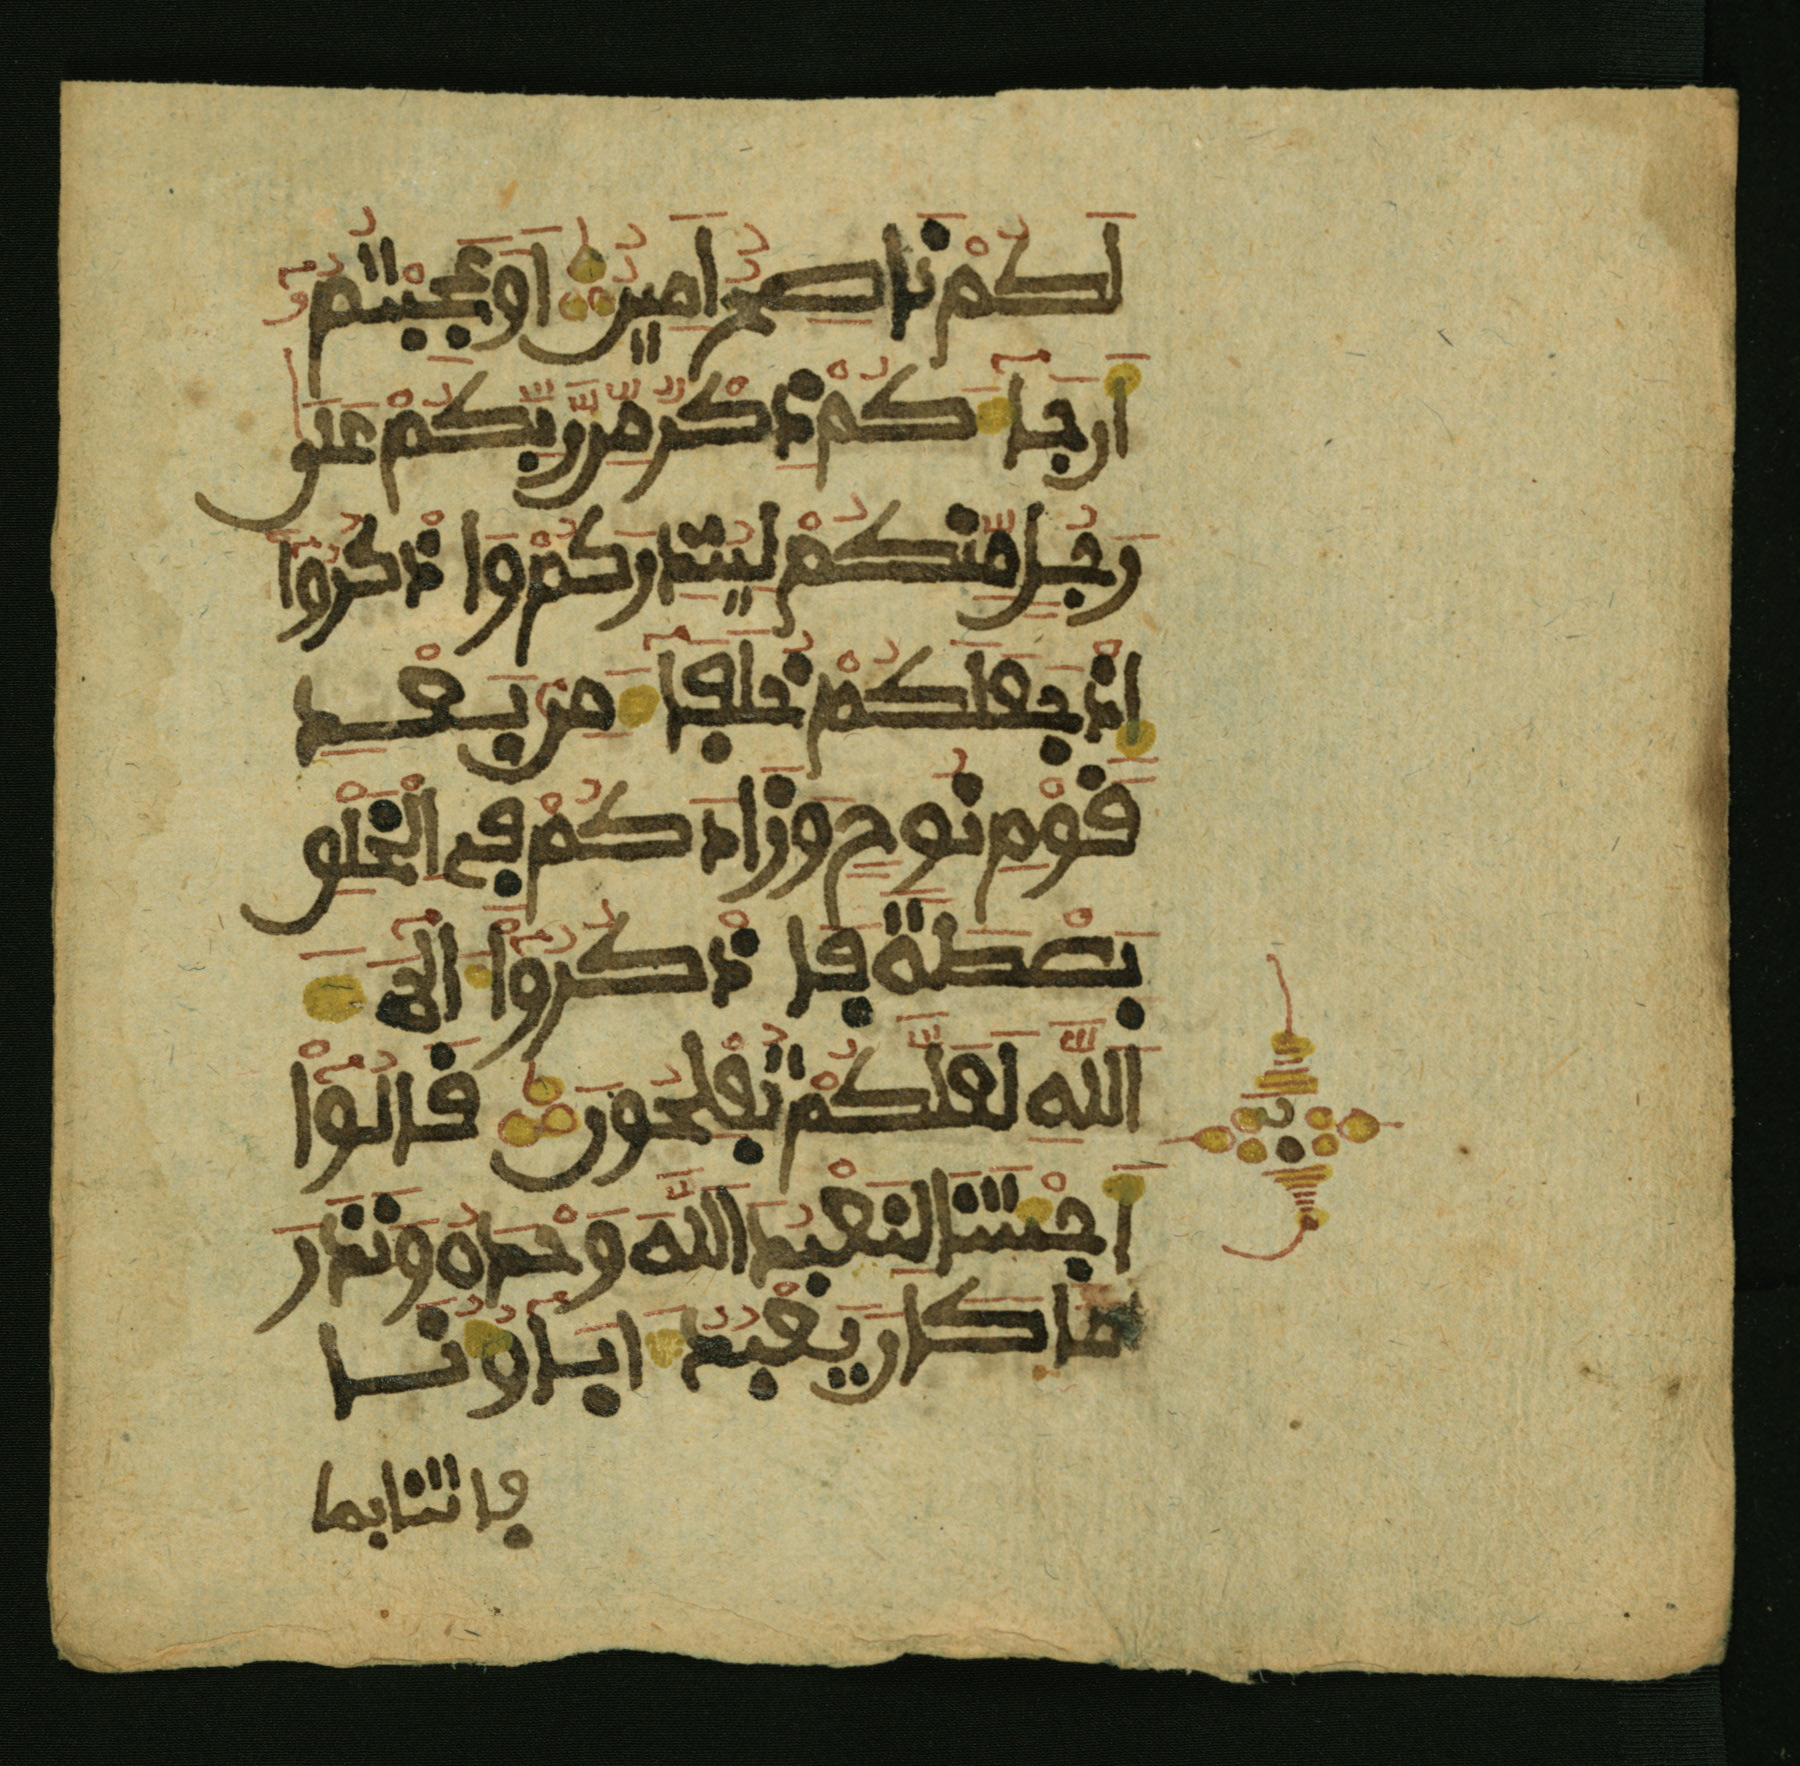 لَكُمْ نَاصِحٌ اَمِينٌ اَوَعَجِبْتُمُ
اَن جَاءَكُمْ ذِكْرٌ مِّن رَّبِّكُمْ عَلَى
رَجُلٍ مِّنكُمْ لِيُنذِرَكُمْ وَاذْكُرُوا
اِذْ جَعَلَكُمْ خُلَفَاءَ مِن بَعْدِ
قَوْمِ نُوحٍ وَزَادَكُمْ فِي الْخَلْقِ
بَصْطَةً فَاذْكُرُوا الَاءَ
اللَّهِ لَعَلَّكُمْ تُفْلِحُونَ قَالُوا
اَجِئْتَنَا لِنَعْبُدَ اللَّهَ وَحْدَهُ وَنَذَرَ
مَا كَانَ يَعْبُدُ ءَابَاؤُنَا
فاتنا بما